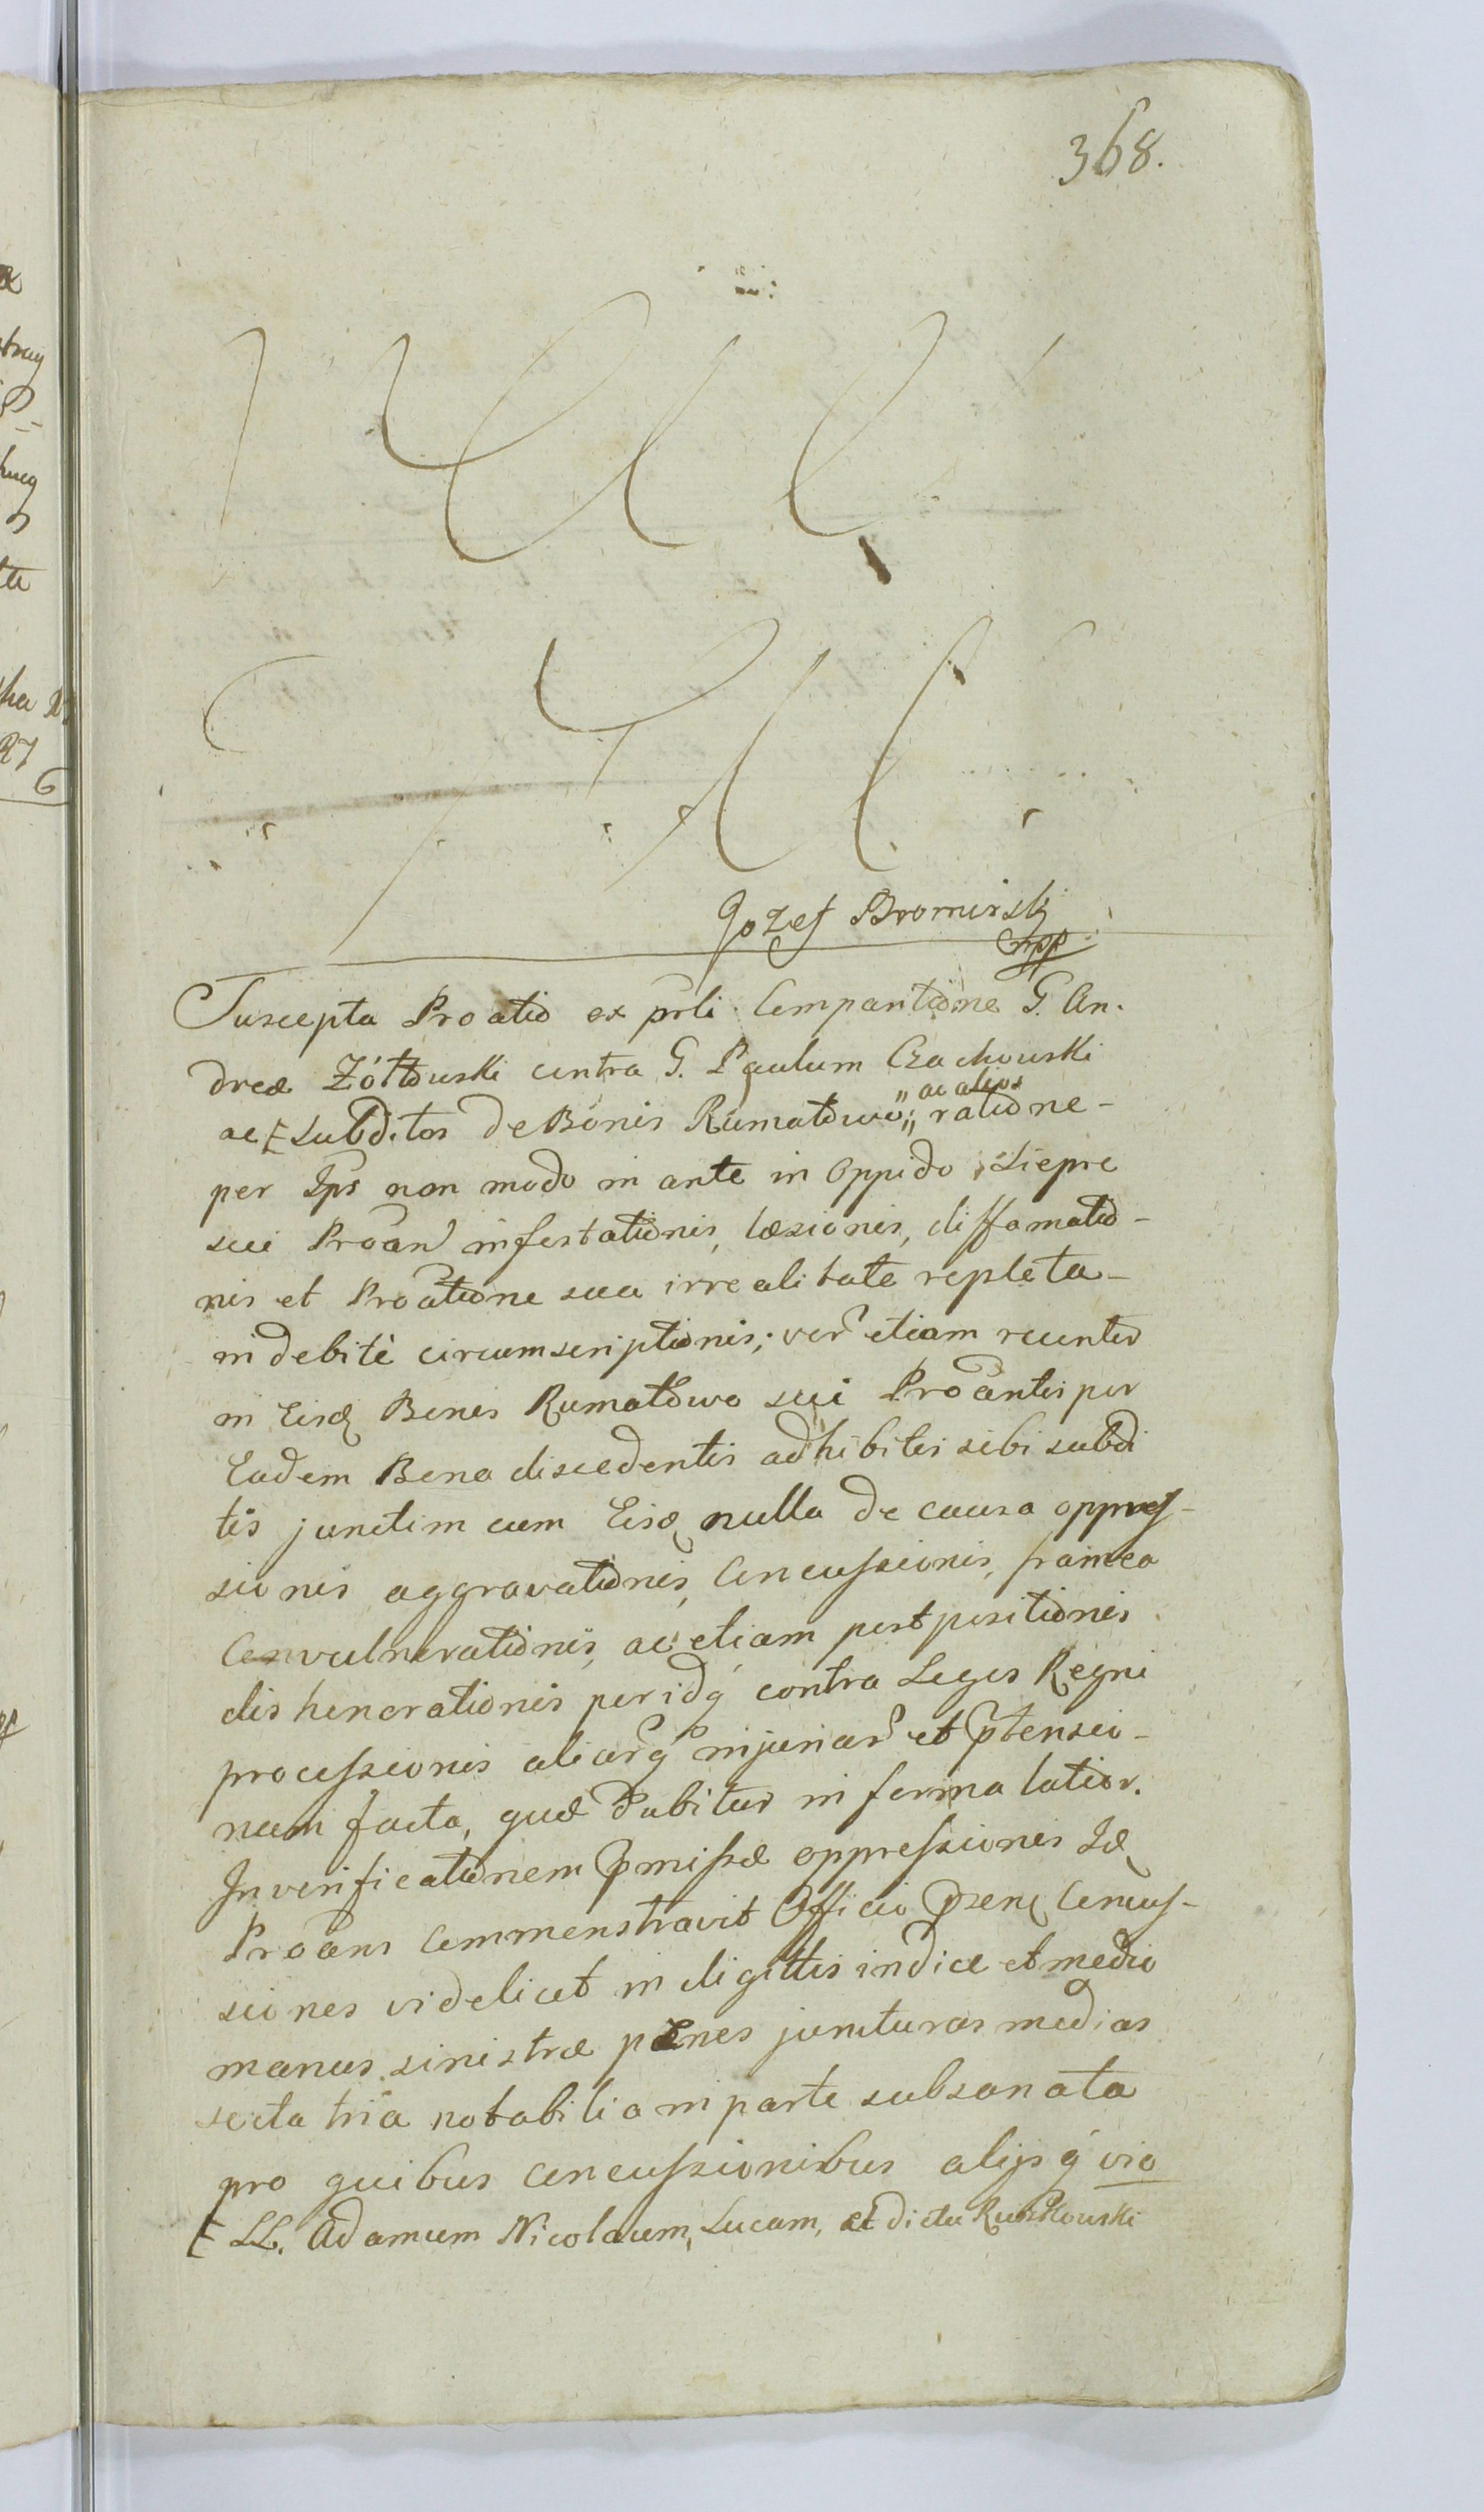 368.
Jozef Bromirski
mpp
Suscepta Proatio ex prli Comparitione G. An.
dreæ Żółtowski contra G. Paulum Czachowski
ac [ subditos de Bonis Rumatowo „ ac alios „ ratione-
per Ips non modo in ante in Oppido Siepre
sui Proan infestationis, læsionis, diffamatio-
nis et Proatione sua irrealitate repleta-
indebitè circumscriptionis; ver etiam recenter
in Eisd Bonis Rumatowo sui Proantis per
Eadem Bona discedentis adhibitis sibi subdi
tis junctim cum Eisd nulla de causa oppres-
sionis aggravationis, Concussionis, framea
Convulnerationis, ac etiam postpositionis
dishonorationis per idq contra Leges Regni
processionis aliarq injuriar et ptensio-
num facta, quæ dabitur in forma latior.
In verificationem pmissæ oppressionis Id
Proans Commonstravit Officio psen Concus-
siones videlicet in digittis indice et medio
manus sinistræ penes juncturas medias
secta tria notabilia in parte subsanata
pro quibus Concussionibus alijsq vio
[ LL. Adamum Nicolaum, Lucam, et dictu Ruszkowski